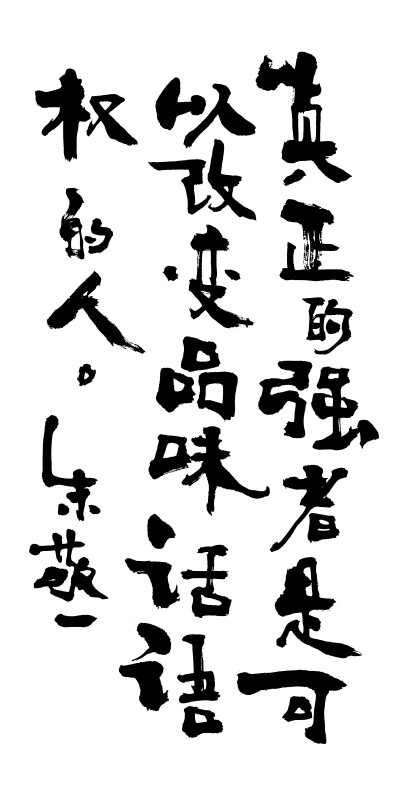 真正的强者是可
以改变品味话语
权的人。朱敬一